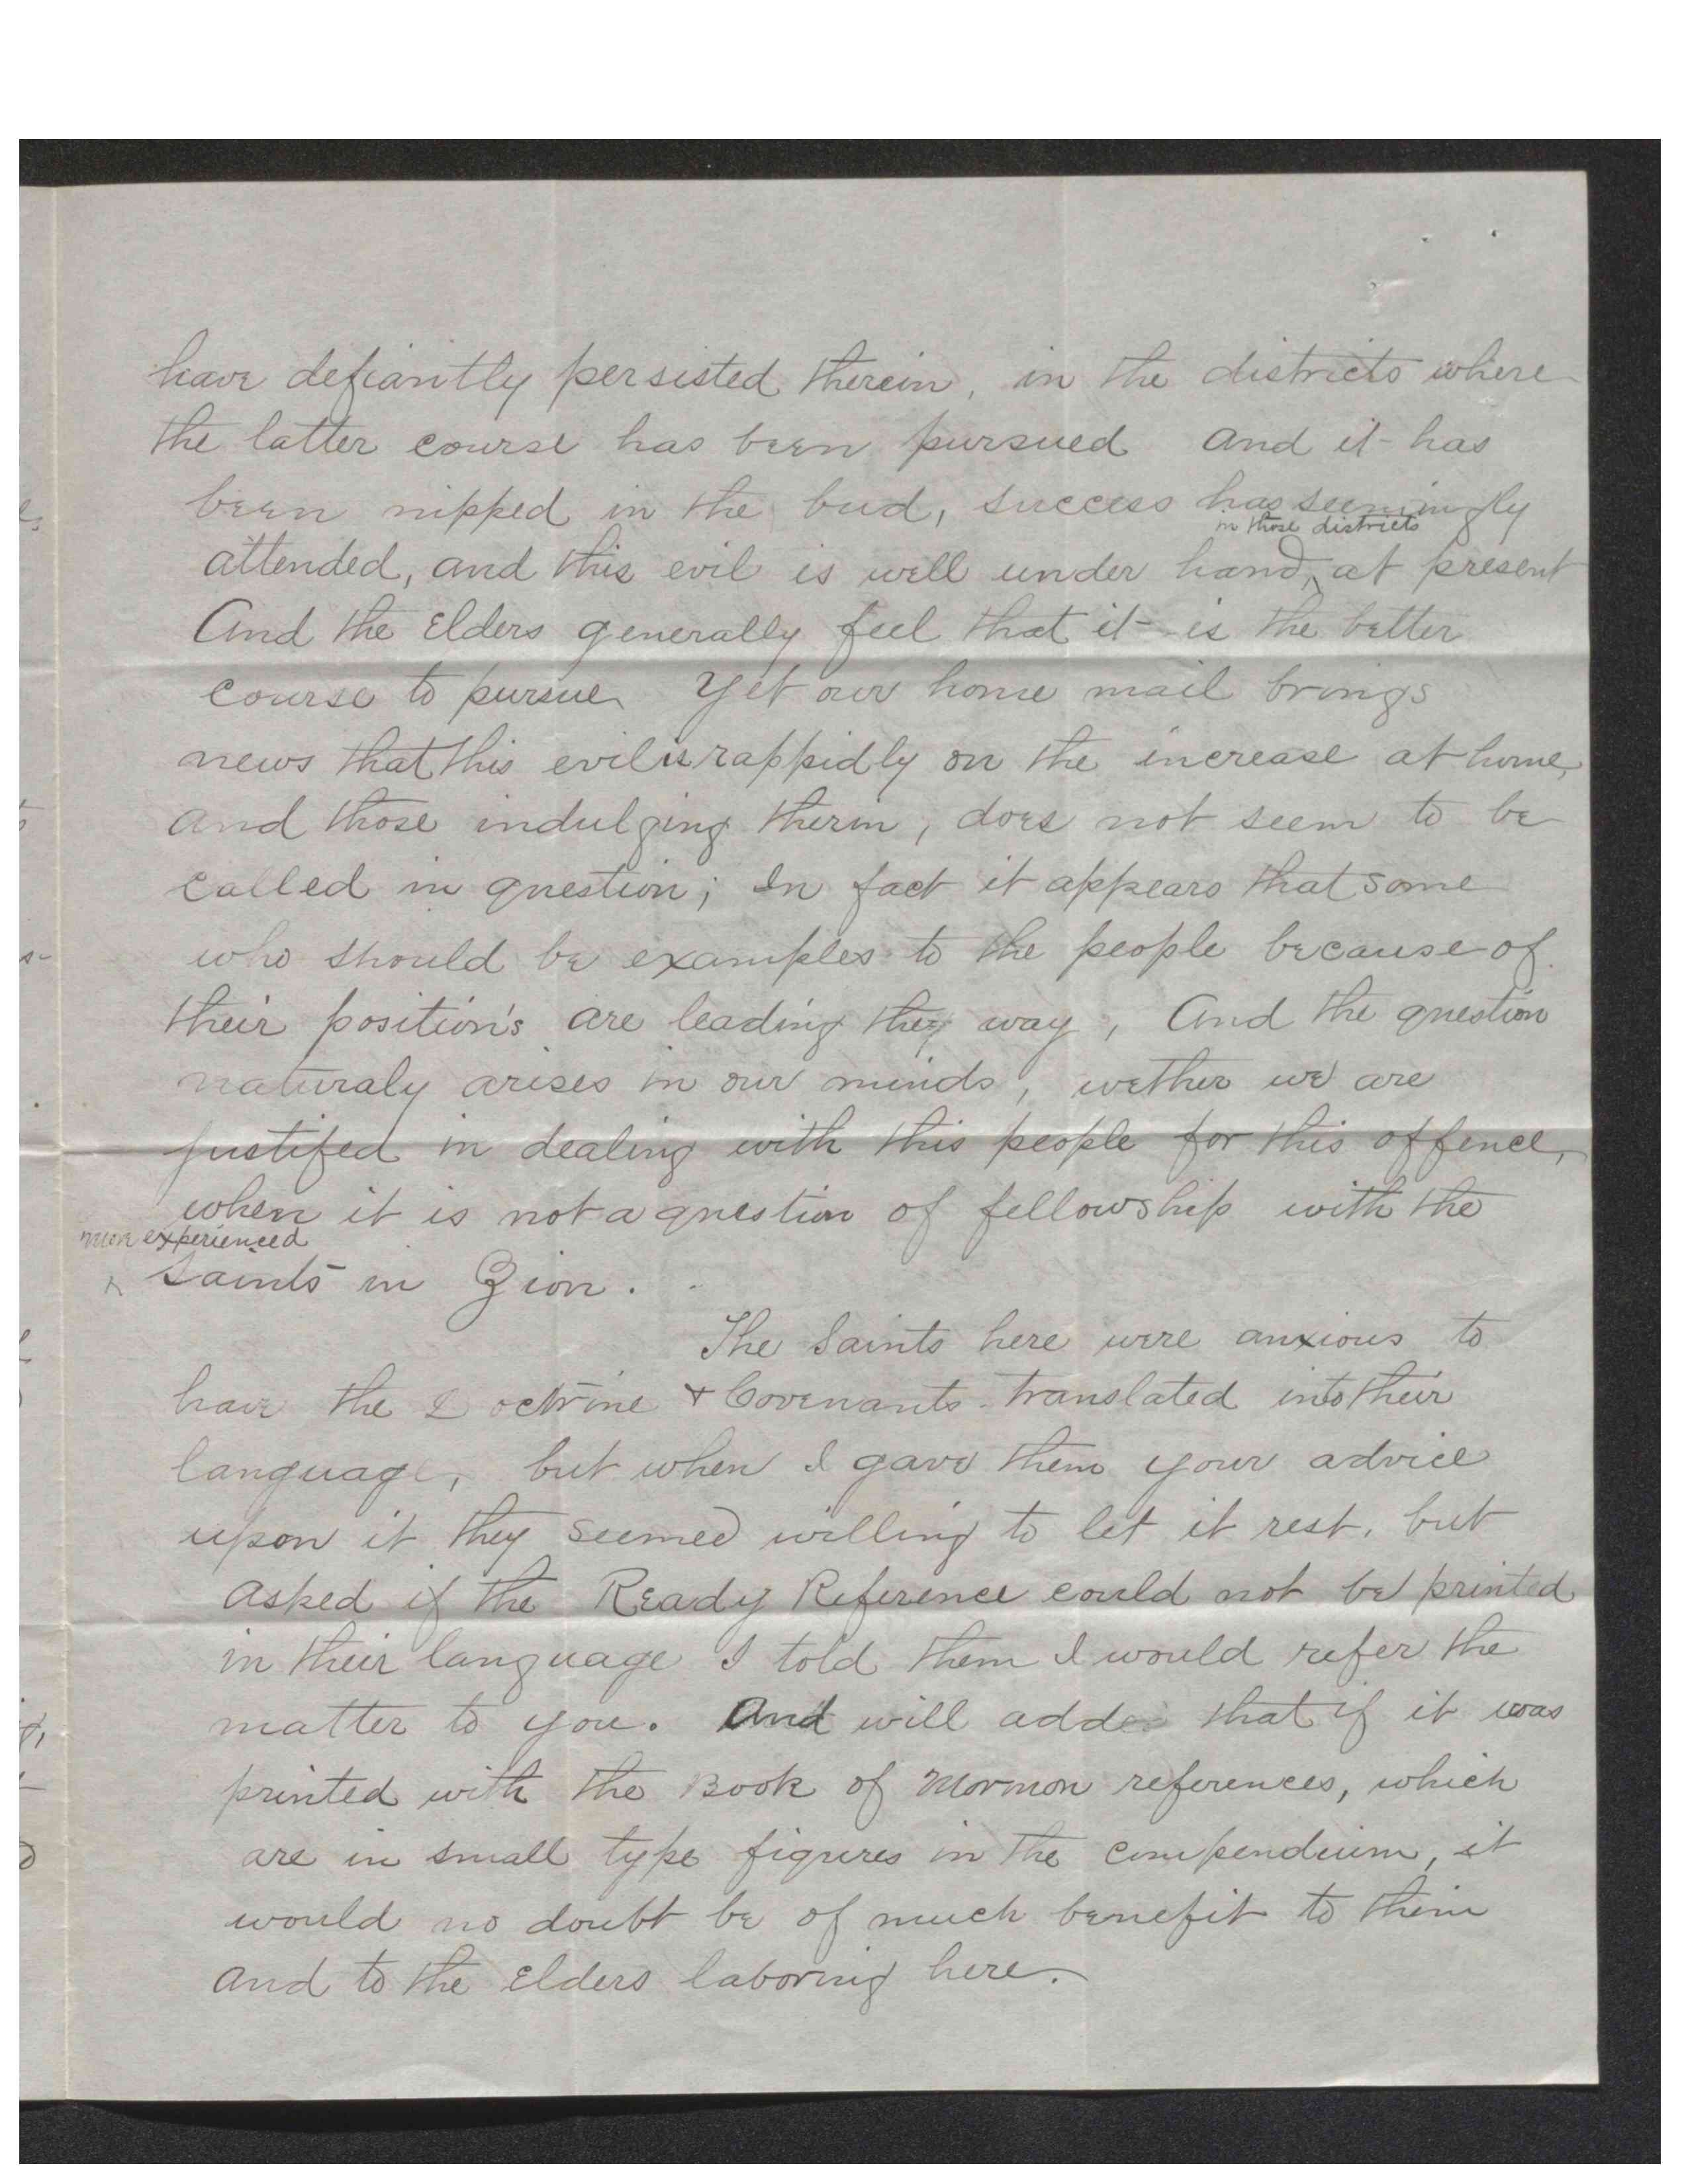 have defiantly persisted therein, in the districts where
the latter course has been pursued and it has
been nipped in the bud, success has seemingly
in those districts
attended, and this evil is well under hand, at present
And the Elders generally feel that it is the better
course to pursue. Yet our home mail brings
news that this evil is rappidly on the increase at home,
and those indulging therin, does not seem to be
called in question; In fact it appears that some
who should be examples to the people because of
their position's are leading they way, And the question
naturaly arises in our minds, wether we are
justifed in dealing with this people for this offence,
when it is not a question of fellowship with the
more experienced
Saints in Zion.
The Saints here were anxious to
have the Doctrine & Covenants translated into their
language, but when I gave them your advice
upon it they seemed willing to let it rest, but
asked if the Ready Reference could not be printed
in their language I told them I would refer the
matter to you. And will add that if it was
printed with the Book of Mormon references, which
are in small type figures in the compendium, it
would no doubt be of much benefit to them
and to the Elders laboring here.